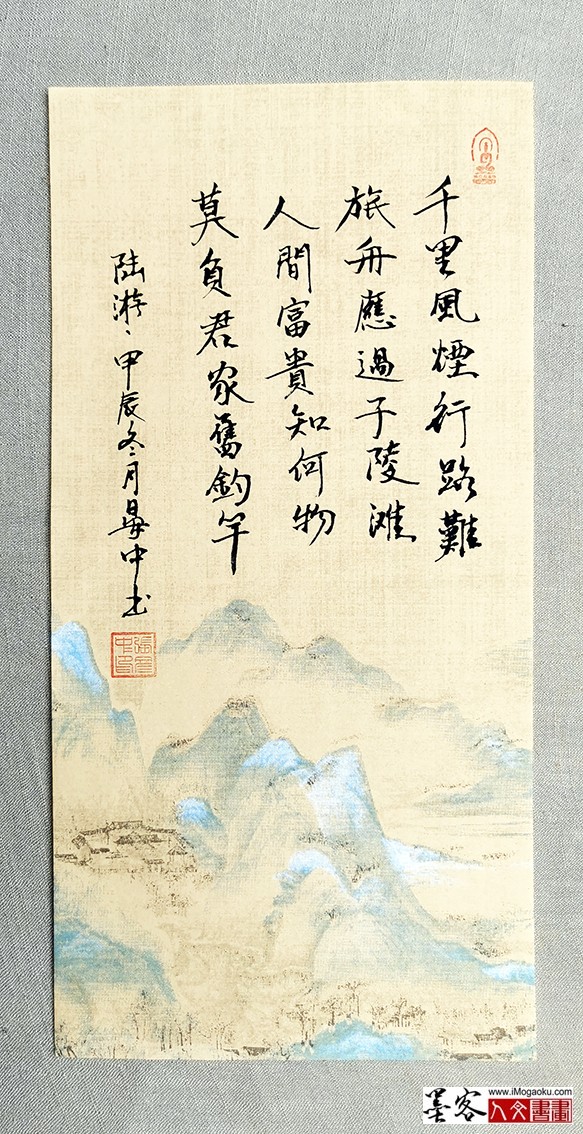 千里風煙行路難
旅舟應過子陵灘
人間富貴知何物
莫負君家舊釣竿
陸游、甲辰冬月晷中书
墨客
www.iMogaoku.com
人文書畫